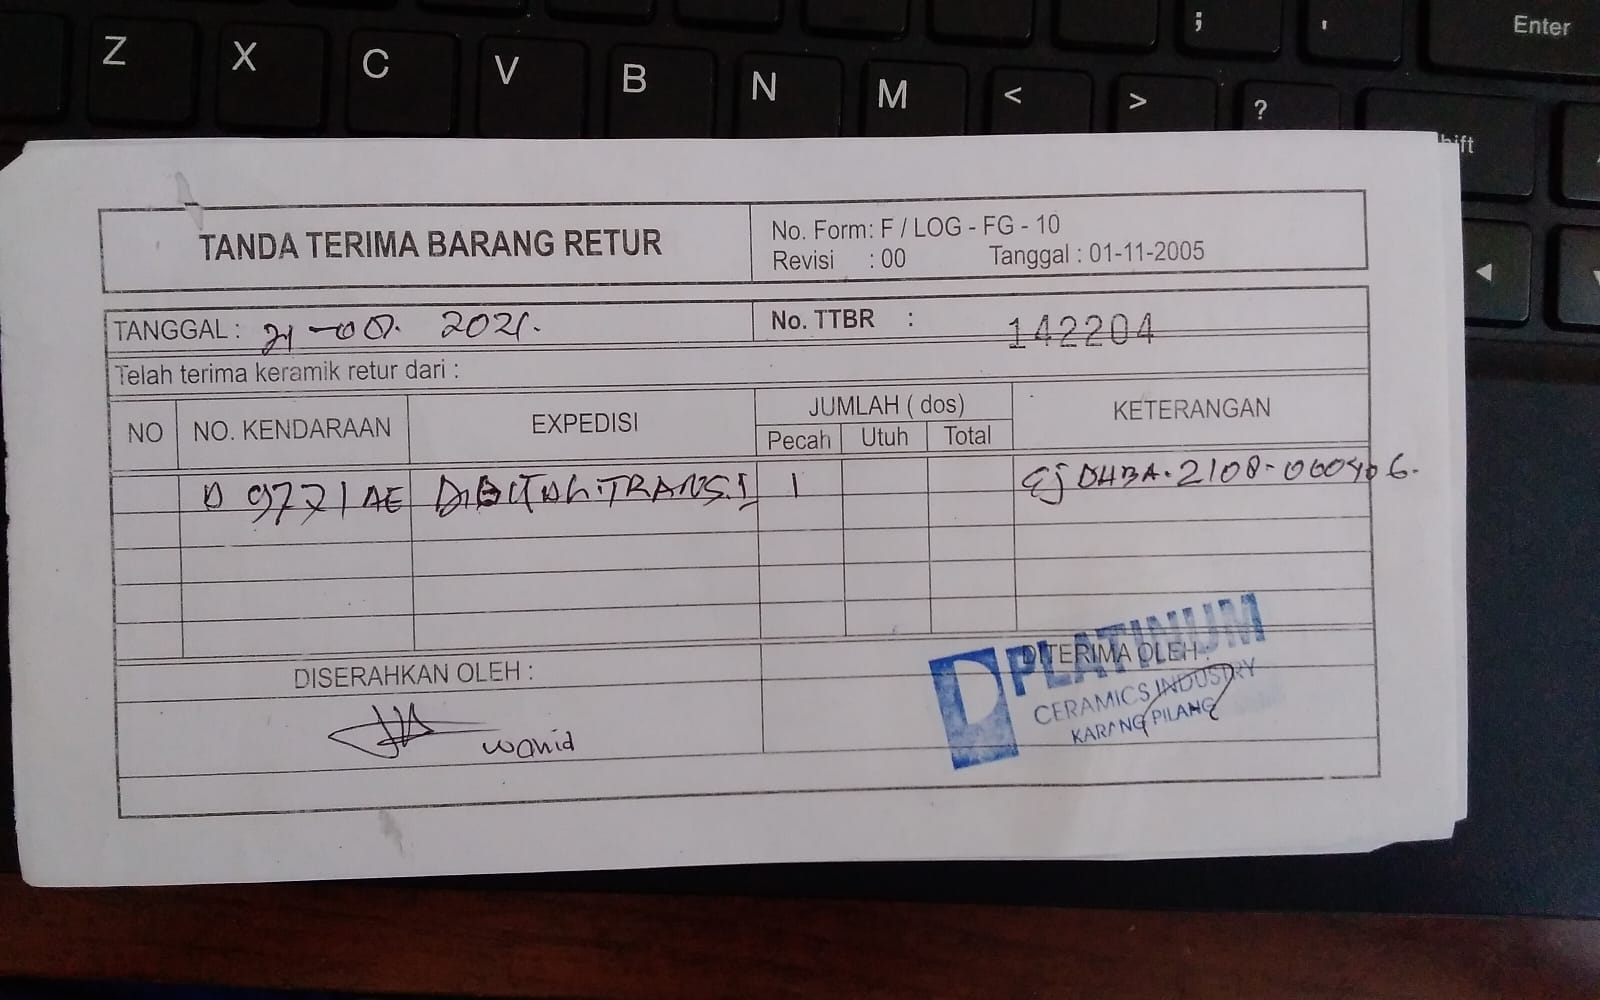 Z X C V B N M < > ? ; ' Enter
TANDA TERIMA BARANG RETUR
No. Form: F / LOG - FG - 10
Revisi : 00 Tanggal : 01-11-2005
TANGGAL : 21 - 2021.
No. TTBR : 142204
Telah terima keramik retur dari :
NO NO. KENDARAAN EXPEDISI JUMLAH ( dos) KETERANGAN
Pecah Utuh Total
9771 AE TRANS. 1 2108-
DISERAHKAN OLEH :
DITERIMA OLEH :
wahid
PLATINUM
CERAMICS INDUSTRY
KARANG PILANG